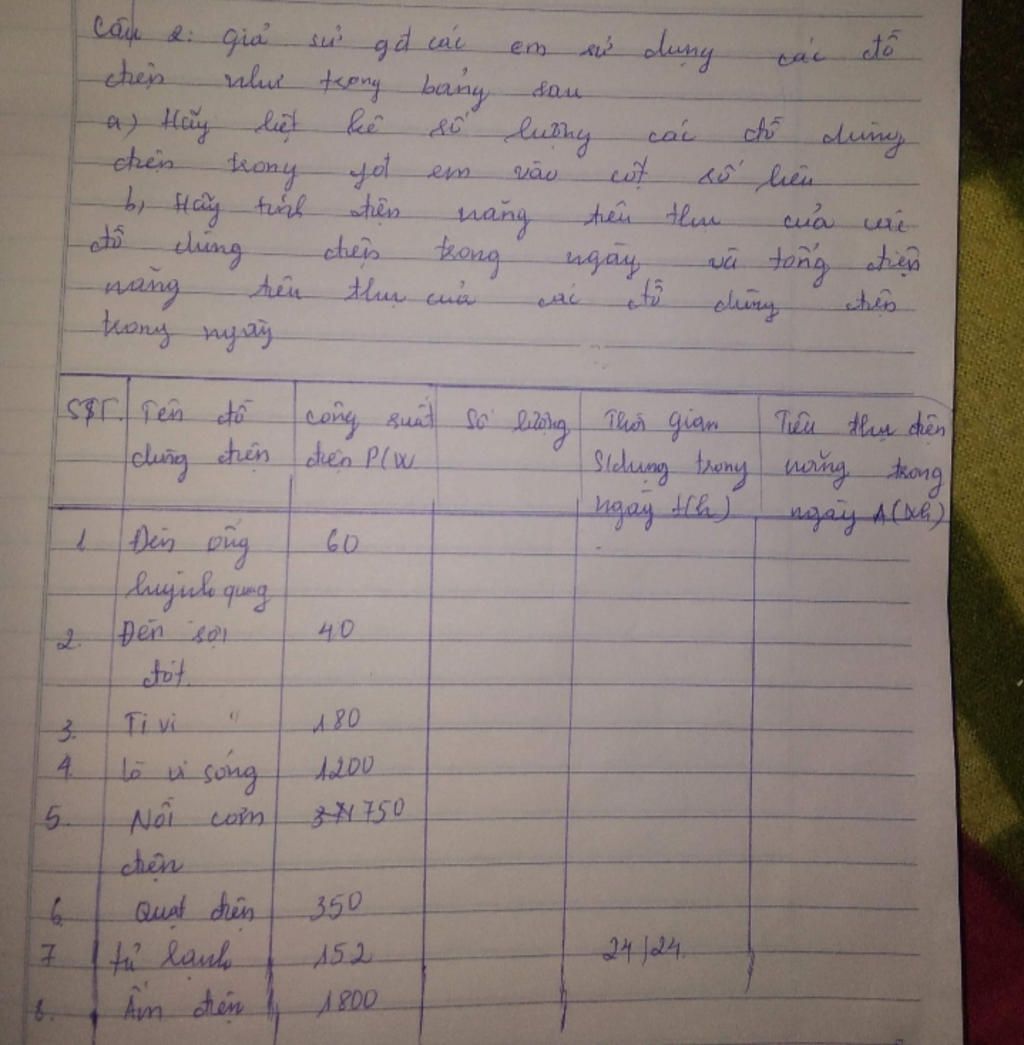 Câu 2: Giả sử gđ các em sử dụng các đồ
điện như trong bảng sau
a) Hãy liệt kê số lượng các đồ dùng
điện trong gđ em vào cột số liệu
b, Hãy tính điện năng tiêu thụ của các
đồ dùng điện trong ngày và tổng điện
năng tiêu thụ của các đồ dùng điện
trong ngày
STT. Tên đồ dùng điện công suất điện P(W Số lượng Thời gian S/dụng trong ngày t(h) Tiêu thụ điện năng trong ngày A(Wh)
1 Đèn ống 60
huỳnh quang
2. Đèn sợi 40
đốt.
3. Ti vi " 180
4. Lò vi sóng 1200
5. Nồi cơm 750
điện
6. Quạt điện 350
7 tủ lạnh 152 24/24.
8. Ấm điện 1800